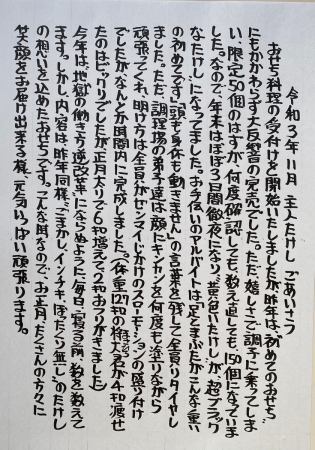 令和3年11月 主人たけし ごあいさつ
おせち料理の受付を開始いたしましたが、昨年は、初めてのおせち
にもかかわらず大反響の完売でした。ただ、嬉しさで調子に乗ってしま
い、限定50個のはずが、何度確認しても、数え直しても、150個になっていま
した。なので、年末はほぼ3日間徹夜になり、"黄色いたけし"が、"超ブラック
なたけし"になってました。お手伝いのアルバイトは、「足とまぶたがこんなに重い
の初めてです」「頭も身体も動きません」の言葉を残して全員リタイヤし
ました。ただ、調理場の弟子達は顔にキンカンを何度も塗りながら
頑張ってくれ、明け方は全員がゼンマイじかけのスローモーションの盛り付け
でしたが、なんとか時間内に完成しました。(体重127㎏の特大君が4㎏痩せ
たのはビックリでしたが、正月太りで6㎏増えて2㎏おつりがきました)
今年は、"地獄の働き方逆改革"にならぬように、毎日、"寝る前、数を数えて
ます。しかし、内容は昨年同様、"ごまかし、インチキ、ぼったくり無し"のたけし
の想いを込めたおせちです。こんな時なので、お正月、たくさんの方々に
笑顔をお届け出来る様、元気いっぱい頑張ります。